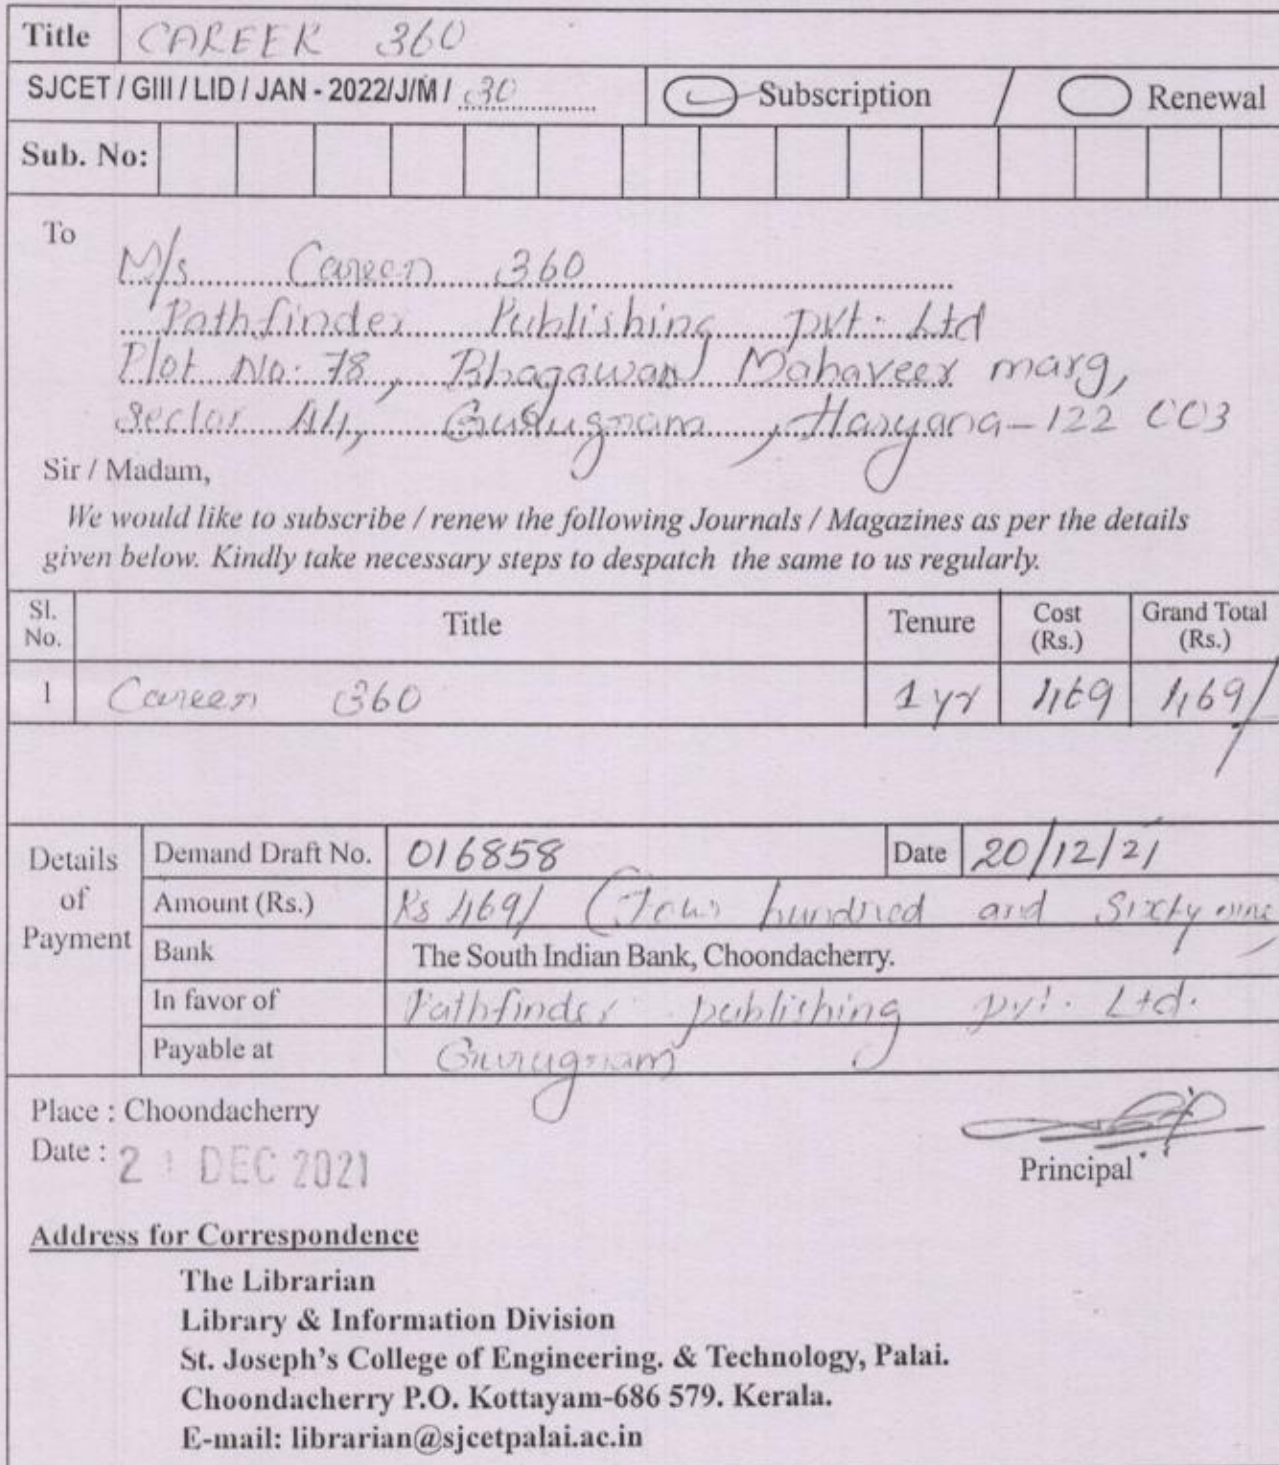 Title CAREER 360
SJCET / GIII / LID / JAN - 2022/J/M/ 30 Subscription / Renewal
Sub. No:
To
M/s Career 360
Pathfinder Publishing pvt. Ltd
Plot No. 78, Bhagawan Mahaveer marg,
Sector 44, Gurugram, Haryana-122 003
Sir / Madam,
We would like to subscribe / renew the following Journals / Magazines as per the details
given below. Kindly take necessary steps to despatch the same to us regularly.
Sl. No. Title Tenure Cost (Rs.) Grand Total (Rs.)
1 Career 360 1 yr 469 469/-
Details of Payment
Demand Draft No. 016858 Date 20/12/21
Amount (Rs.) Rs 469/ (Four hundred and Sixty nine
Bank The South Indian Bank, Choondacherry.
In favor of Pathfinder publishing pvt. Ltd.
Payable at Gurugram
Place : Choondacherry
Date : 21 DEC 2021
Principal
Address for Correspondence
The Librarian
Library & Information Division
St. Joseph's College of Engineering. & Technology, Palai.
Choondacherry P.O. Kottayam-686 579. Kerala.
E-mail: librarian@sjcetpalai.ac.in